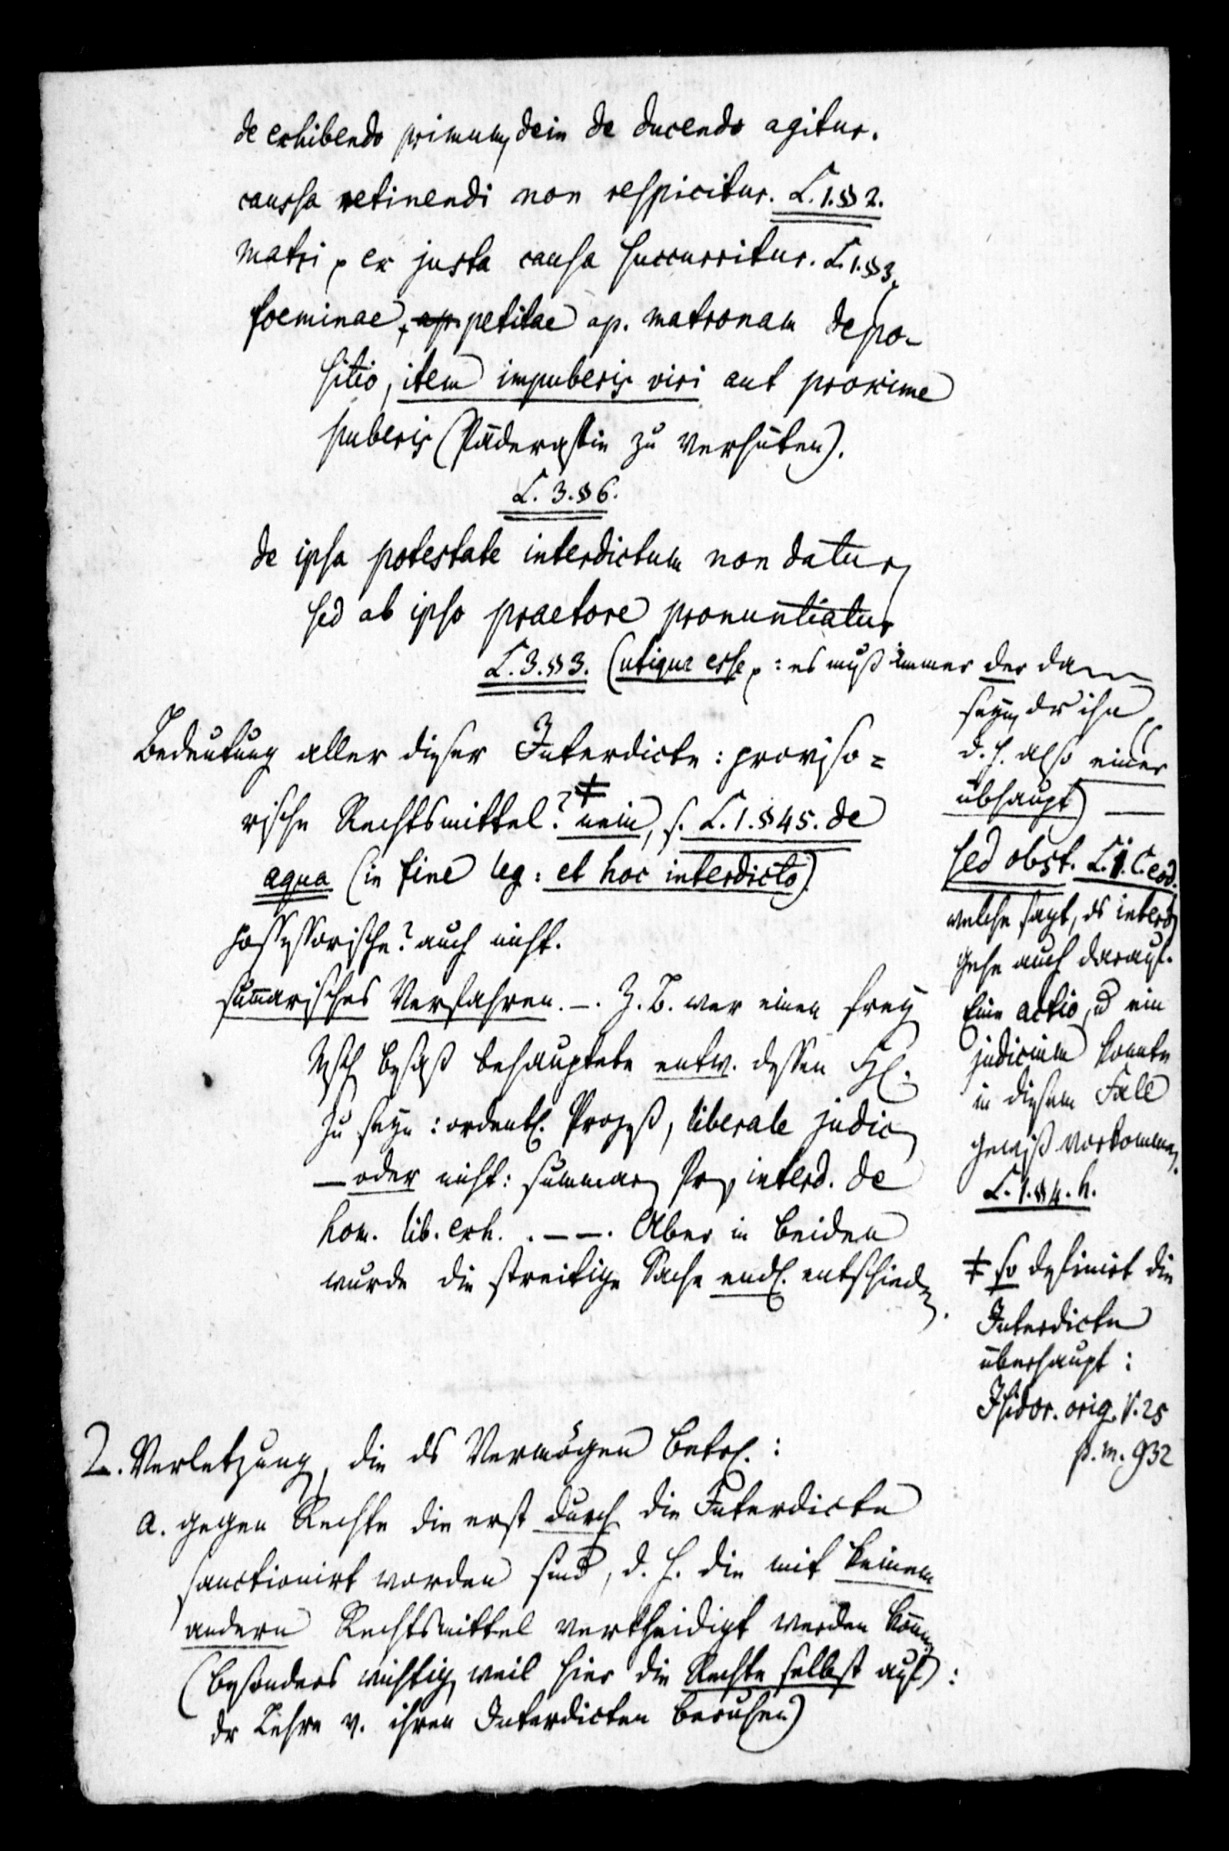 de exhibendo primum, dein de ducendo agitur.
caussa retinendi non respicitur. L. 1. §§ 2.
matri ex justa causa succurritur. L. 1. §§ 3.
foeminae, ap. petitae ap. matronam depo-
sitio, item impuberis viri aut proxime
puberis (Päderastie zu verhüten).
L. 3. § 6.
de ipsa potestate interdictum non datur
sed ab ipso praetore pronuntiatur
L. 3. §§ 3. (utique esse : es muß immer der dann
seyn, dr ihn
d. h. also einer
übhaupt) —
Bedeutung aller dieser Interdicte : proviso=
rische Rechtsmittel? ǂ nein, s. L. 1. § 45. de
aqua (in fine leg : et hoc interdicto).
possessorische? auch nicht.
summarisches Verfahren. —. Z. B. wer einen frey
Msch besaß behauptete entw. dessen H.
zu seyn : ordentl. Prozeß, liberale judic
— oder nicht : summar Pr interd. de
hom. lib. exh. . — —. Aber in beiden
wurde die streitige Sache endl. entschieden.
sed obst. L. 1. C. eod.
welche sagt, ds interd
gehe auch darauf.
Eine actio, u ein
judicium konnte
in diesem Fall
gewiß vorkommen.
L. 1. §§ 4. h.
ǂ so definirt die
Interdicte
überhaupt :
Isidor. orig. V. 25
p. m. 932
2. Verletzung, die ds Vermögen betrf. :
a. gegen Rechte die erst durch die Interdicte
sanctionirt worden sind, d. h. die mit keinem
andern Rechtsmittel vertheidigt werden könn.
(besonders wichtig, weil hier die Rechte selbst auf :
dr Lehre v. ihren Interdicten beruhen)